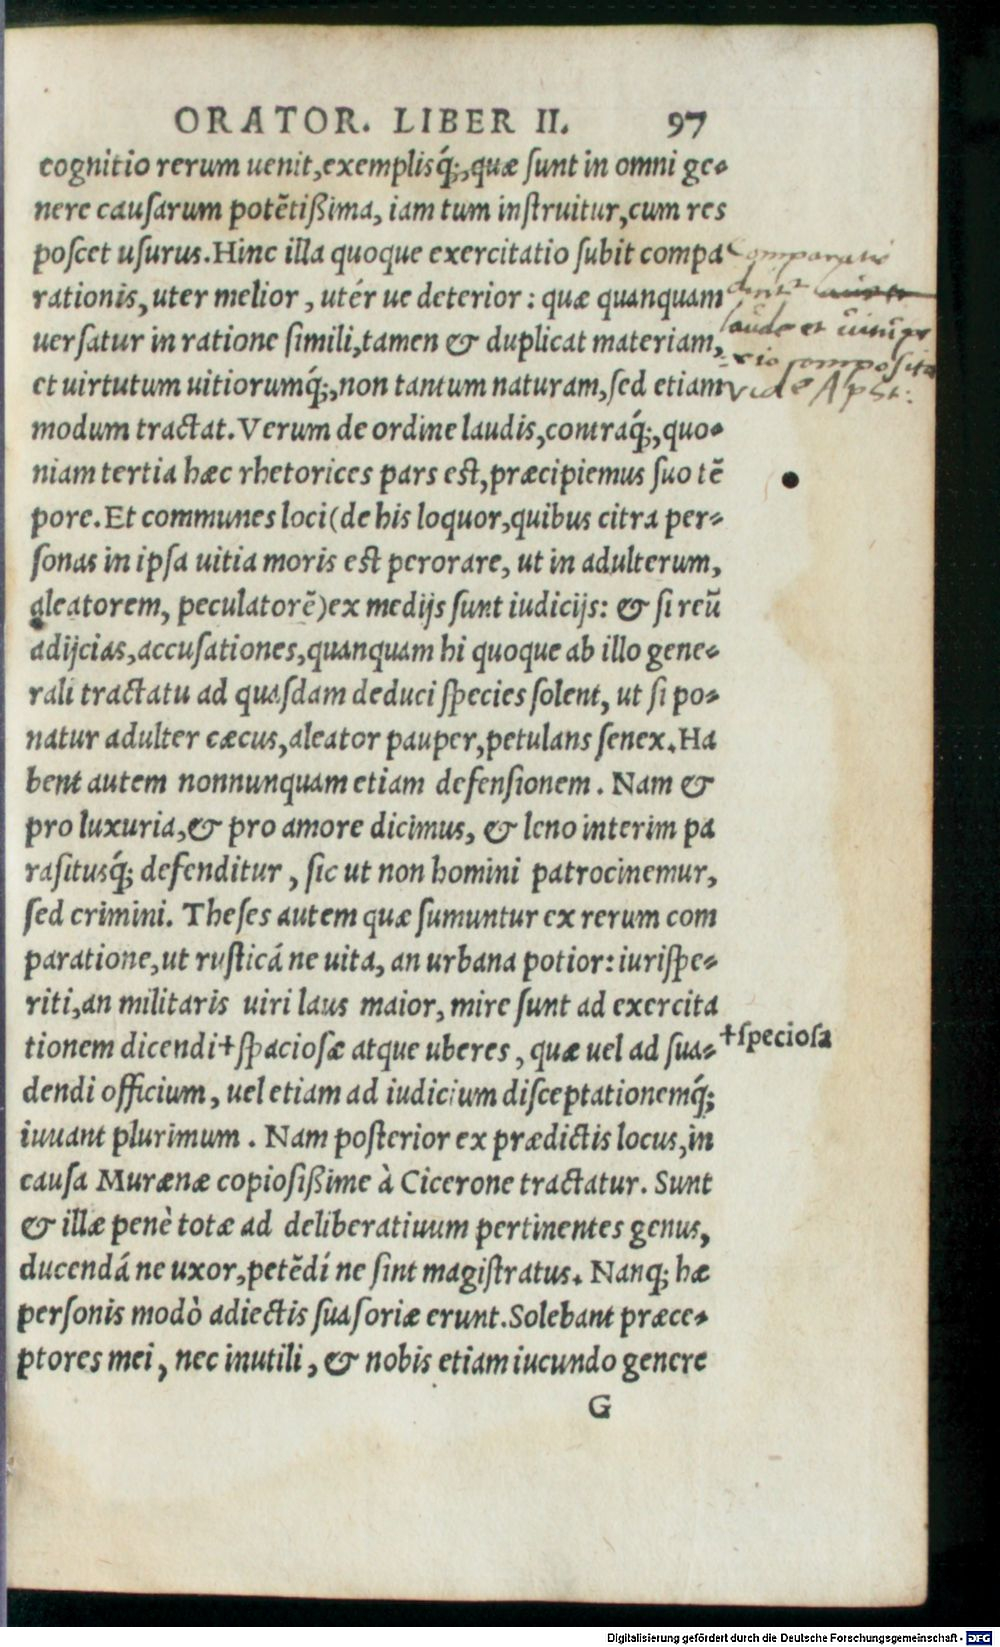 ORATOR. LIBER II. 97
cognitio rerum uenit, exemplisq́;, quæ ſunt in omni ge-
nere cauſarum potẽtißima, iam tum inſtruitur, cum res
poſcet uſurus. Hinc illa quoque exercitatio ſubit compa
rationis, uter melior, utér ue deterior: quæ quanquam
uerſatur in ratione ſimili, tamen & duplicat materiam,
et uirtutum uitiorumq́;, non tantum naturam, ſed etiam
modum tractat. Verum de ordine laudis, contraq́;, quo-
niam tertia hæc rhetorices pars eſt, præcipiemus ſuo tẽ
pore. Et communes loci (de his loquor, quibus citra per-
ſonas in ipſa uitia moris eſt perorare, ut in adulterum,
aleatorem, peculatorẽ) ex medijs ſunt iudicijs: & ſi reũ
adijcias, accuſationes, quanquam hi quoque ab illo gene-
rali tractatu ad quaſdam deduci ſpecies ſolent, ut ſi po-
natur adulter cæcus, aleator pauper, petulans ſenex. Ha
bent autem nonnunquam etiam defenſionem. Nam &
pro luxuria, & pro amore dicimus, & leno interim pa
raſitusq́; defenditur, ſic ut non homini patrocinemur,
ſed crimini. Theſes autem quæ ſumuntur ex rerum com
paratione, ut ruſticá ne uita, an urbana potior: iuriſpe-
riti, an militaris uiri laus maior, mire ſunt ad exercita
tionem dicendi +ſpacioſæ atque uberes, quæ uel ad ſua-
dendi officium, uel etiam ad iudicium diſceptationemq́;
iuuant plurimum. Nam poſterior ex prædictis locus, in
cauſa Murænæ copioſißime à Cicerone tractatur. Sunt
& illæ penè totæ ad deliberatiuum pertinentes genus,
ducendá ne uxor, petẽdí ne ſint magiſtratus. Nanq; hæ
perſonis modò adiectis ſuaſoriæ erunt. Solebant præce-
ptores mei, nec inutili, & nobis etiam iucundo genere
G
Comparatio
laude et
composita
vide Apht:
+ſpecioſa
Digitalisierung gefördert durch die Deutsche Forschungsgemeinschaft - DFG